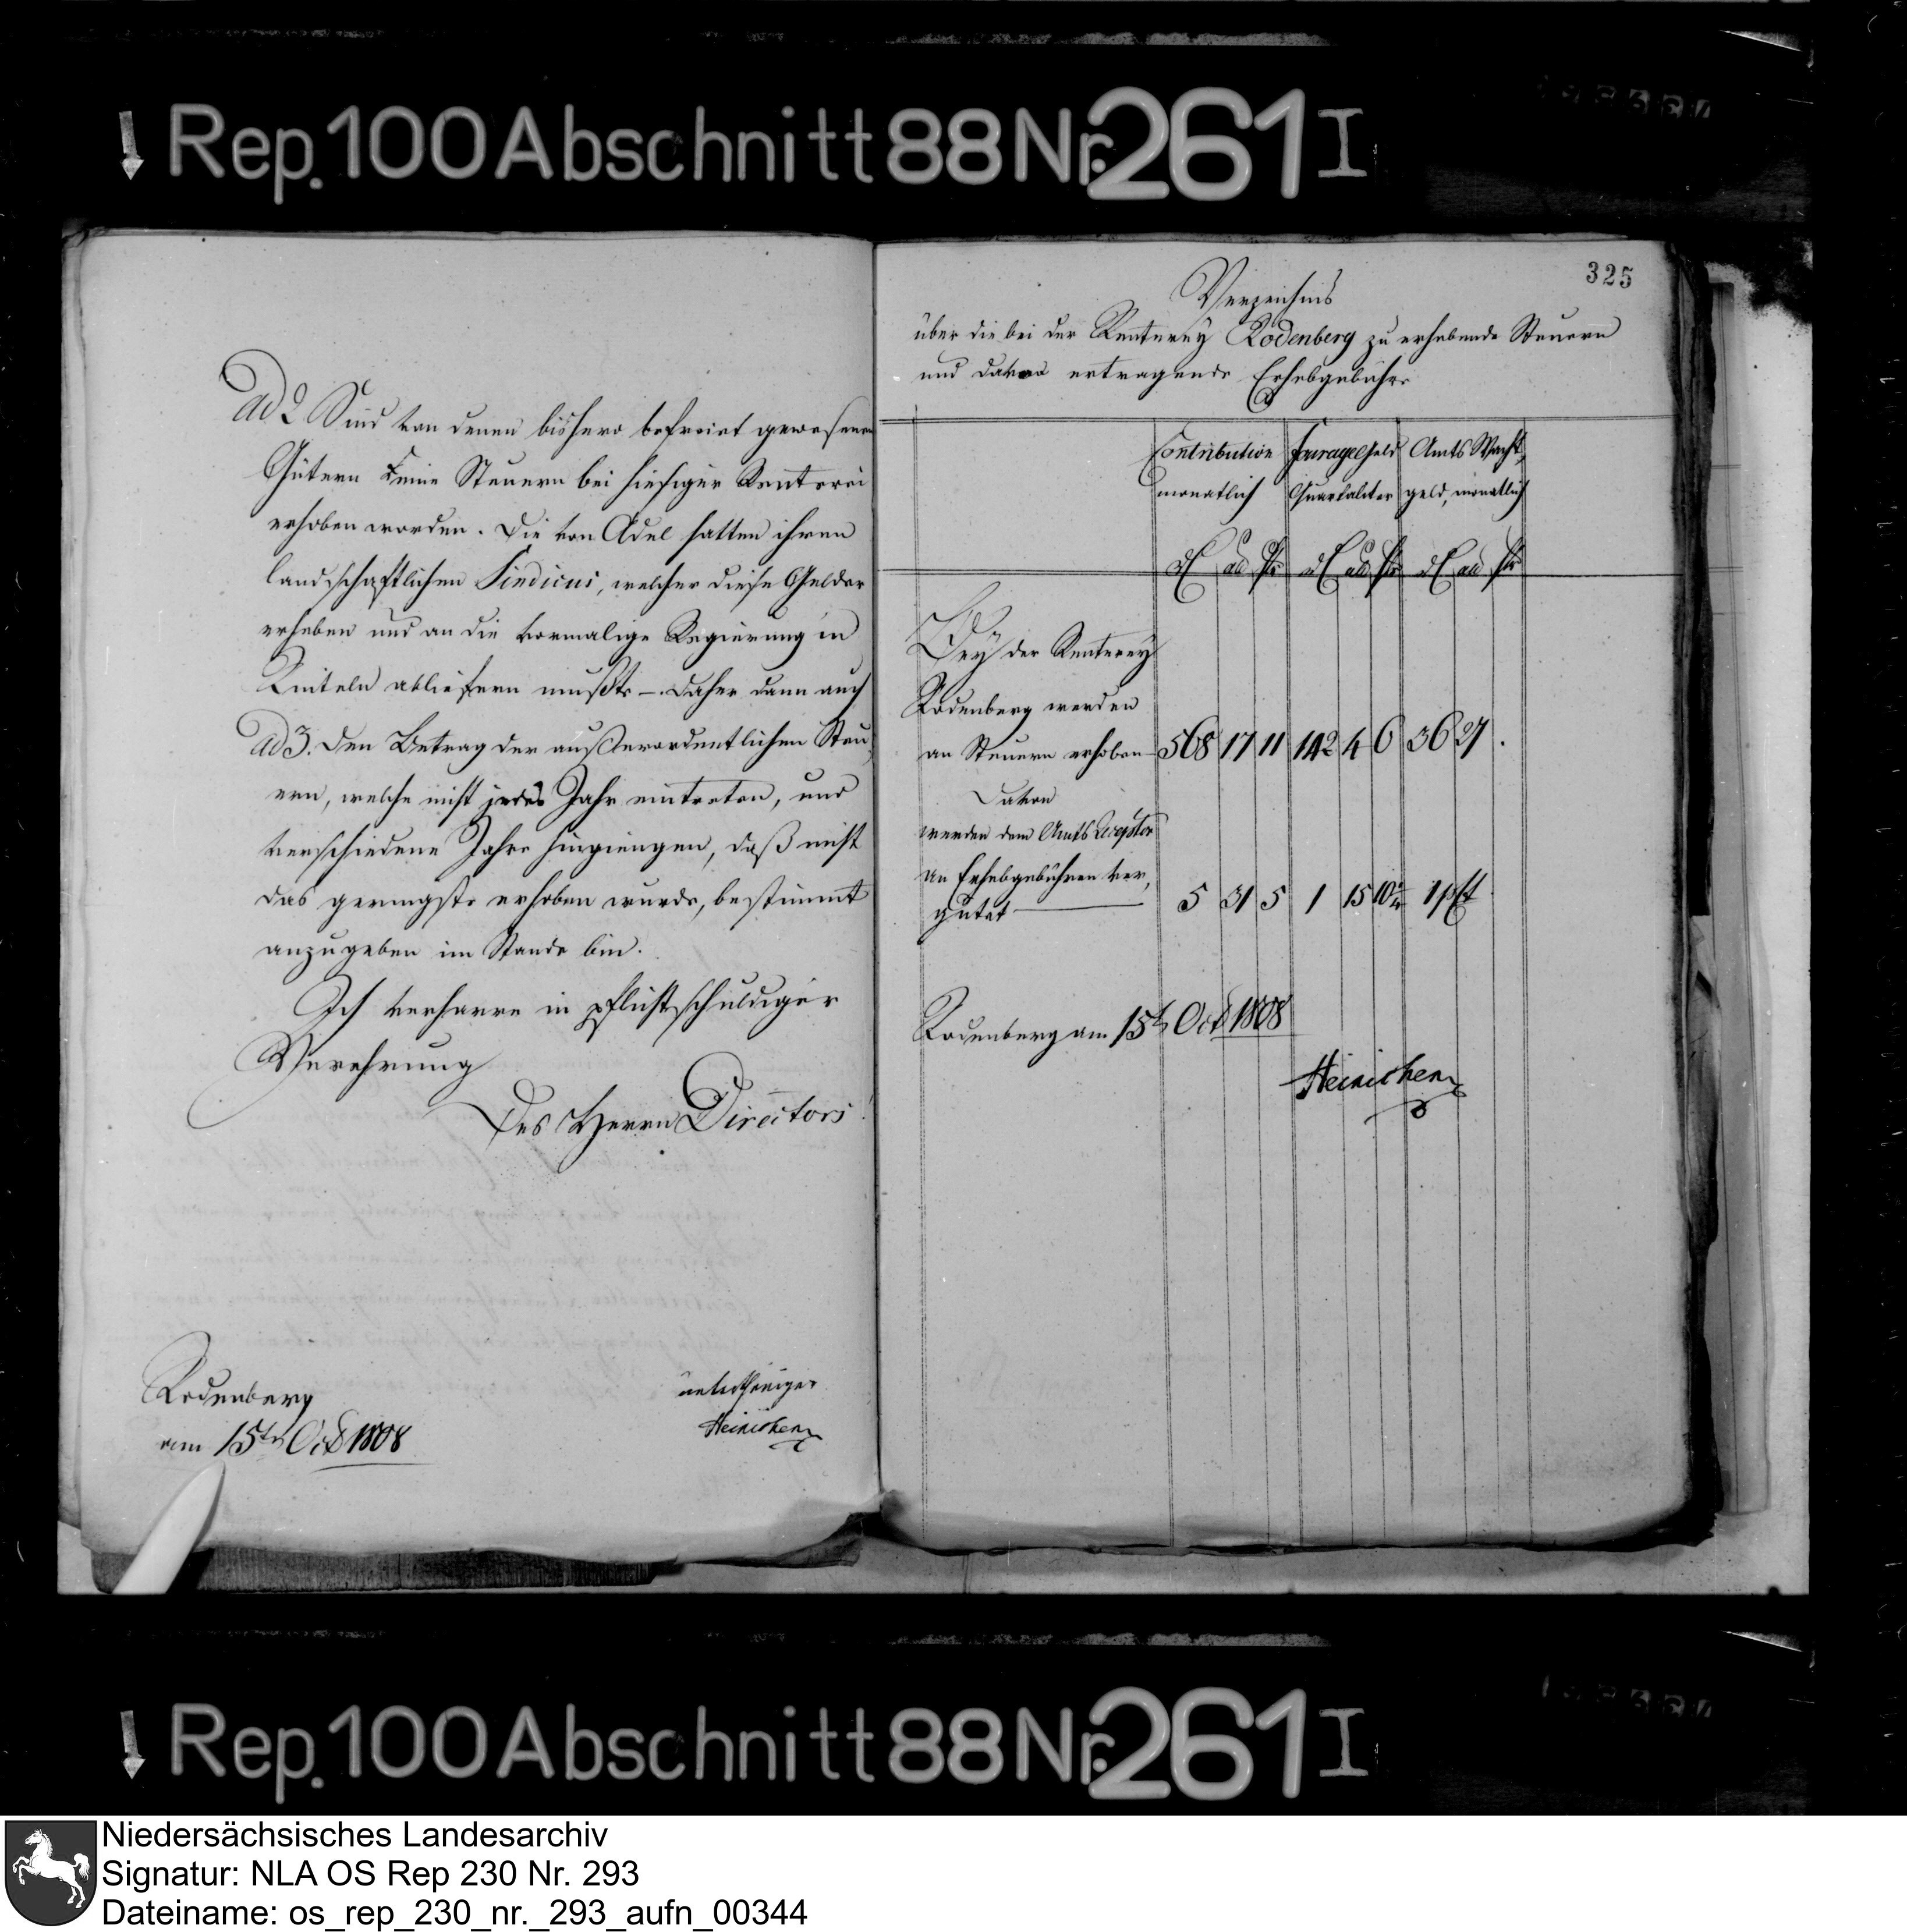 Rep. 100 Abschnitt 88 Nr. 261 I
ad 2 Sind von denen bishero befreiet gewesenen
Gütern keine Steuern bei hiesiger Renterei
erhoben worden. Die von Adel hatten ihren
landschaftlichen Sindicus, welcher diese Gelder
erheben und an die vormalige Regierung in
Rinteln abliefern mußte –. Daher dann auch
ad 3. Den Betrag der außerordentlichen Steu,
ern, welche nicht jedes Jahr eintreten, und
verschiedene Jahre hingiengen, daß nicht
das geringste erhoben wurde, bestimmt
anzugeben im Stande bin.
Ich verharre in pflichtschuldiger
Verehrung
Des Herrn Directors
Rodenberg
am 15ten Oct 1808
unterthäniger
Heinichen
325
Verzeichnis
über die bei der Renterey Rodenberg zu erhebende Steuern
und davon ertragende Erhebgebühr
Contribution Fouragegeld Amts Wacht,
monatlich Quartaliter geld, monatlich
Bey der Renterey
Rodenberg werden
an Steuern erhoben 568 17 11 142 4 6 36 27 .
Davon
werden dem Amts Receptor
an Erhebgebühren ver,
gütet 5 31 5 1 15 10 1 pCt
Rodenberg am 15ten Oct 1808
Heinichen
Rep. 100 Abschnitt 88 Nr. 261 I
Niedersächsisches Landesarchiv
Signatur: NLA OS Rep 230 Nr. 293
Dateiname: os_rep_230_nr._293_aufn_00344